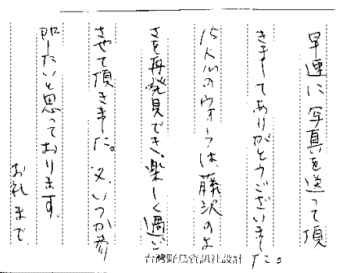 早速に写真を送って頂
きましてありがとうございました。
15人のウォークは、藤沢のよ
さを再発見でき、楽しく過ご
させて頂きました。又、いつか参
加したいと思っております。
お礼まで
台灣野鳥資訊社設計